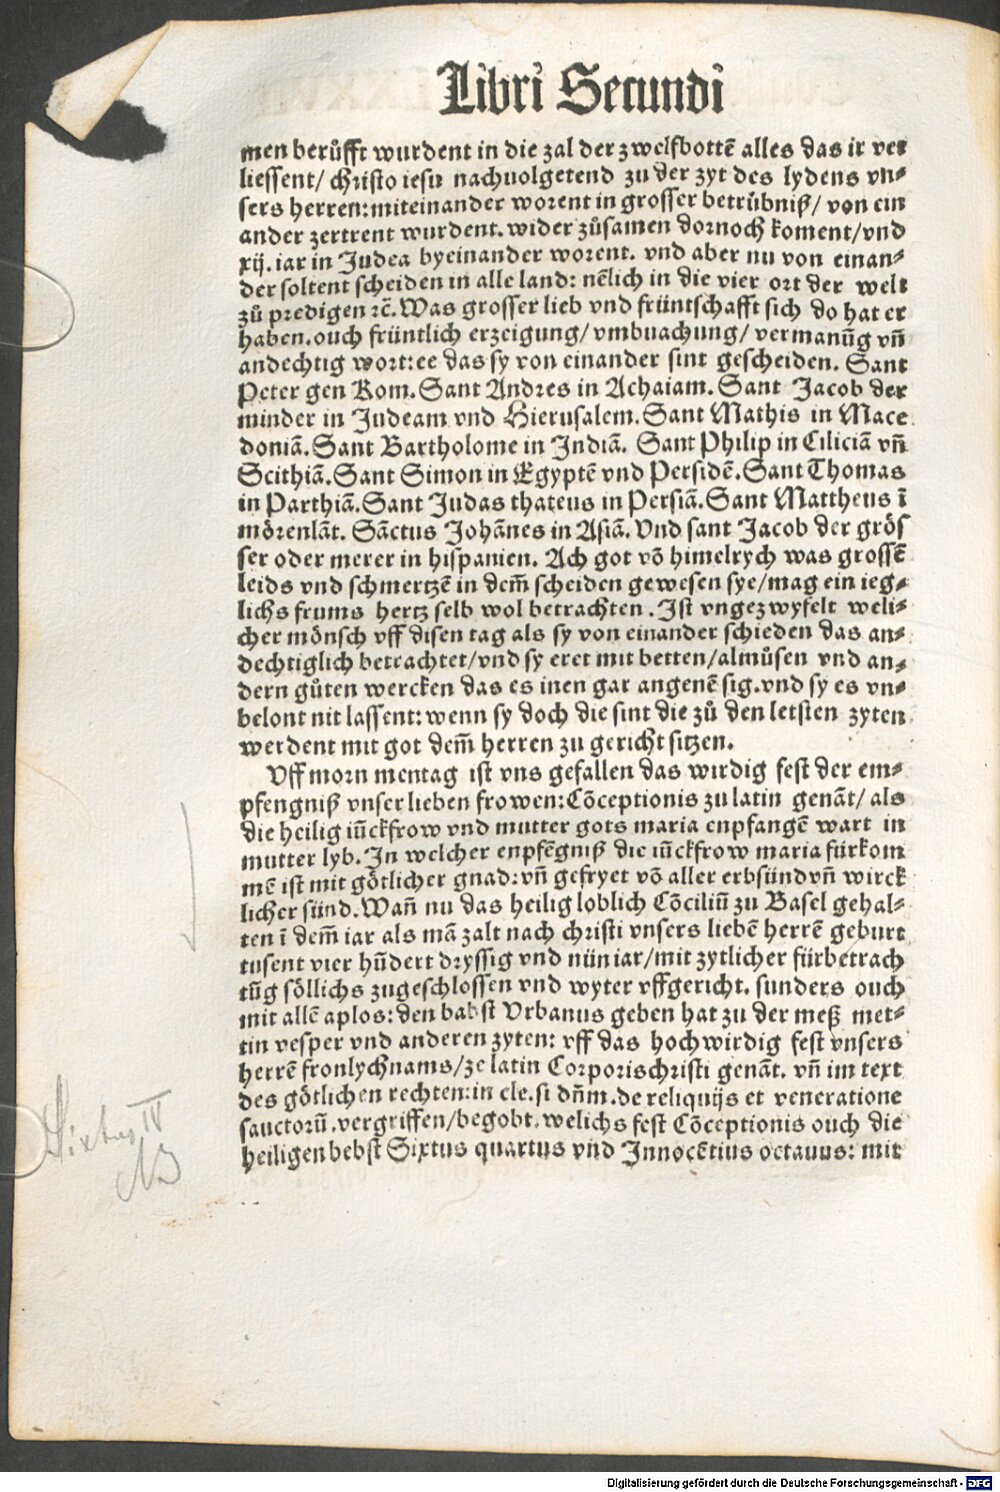 Libri Secundi
men berůfft wurdent in die zal der zwelfbottē alles das ir ver
liessent/ christo iesu nachuolgetend zu der zyt des lydens vn⸗
sers herren: miteinander worent in grosser betrůbniß/ von ein
ander zertrent wurdent. wider zůsamen dornoch koment/vnd
xij. iar in Judea byeinander worent. vnd aber nu von einan⸗
der soltent scheiden in alle land: nēlich in die vier ort der welt
zů predigen ꝛc̄. Was grosser lieb vnd früntschafft sich do hat er
haben. ouch früntlich erzeigung/ vmbuachung/ vermanūg vñ
andechtig wort: ee das sy von einander sint gescheiden. Sant
Peter gen Rom. Sant Andres in Achaiam. Sant Jacob der
minder in Judeam vnd Hierusalem. Sant Mathis in Mace
doniā. Sant Bartholome in Indiā. Sant Philip in Ciliciā vñ
Scithiā. Sant Simon in Egyptē vnd Persidē. Sant Thomas
in Parthiā. Sant Judas thateus in Persiā. Sant Mattheus ī
mörenlāt. Sāctus Johānes in Asiā. Vnd sant Jacob der grös
ser oder merer in hispanien. Ach got vō himelrych was grossē
leids vnd schmertzē in dem̄ scheiden gewesen sye/mag ein ieg⸗
lichs frums hertz selb wol betrachten. Ist vngezwyfelt weli⸗
cher mönsch vff disen tag als sy von einander schieden das an⸗
dechtiglich betrachtet/vnd sy eret mit betten/almůsen vnd an⸗
dern gůten wercken das es inen gar angenē sig. vnd sy es vn⸗
belont nit lassent: wenn sy doch die sint die zů den letsten zyten
werdent mit got dem̄ herren zu gericht sitzen.
Vff morn mentag ist vns gefallen das wirdig fest der em⸗
pfengniß vnser lieben frowen: Cōceptionis zu latin genāt/ als
die heilig iūckfrow vnd mutter gots maria enpfangē wart in
mutter lyb. In welcher enpfēgniß die iūckfrow maria fürkom
mē ist mit götlicher gnad: vñ gefryet vō aller erbsünd vñ wirck
licher sünd. Wañ nu das heilig loblich Cōciliū zu Basel gehal⸗
ten ī dem̄ iar als mā zalt nach christi vnsers liebē herrē geburt
tusent vier hūdert dryssig vnd nün iar/mit zytlicher fürbetrach
tūg söllichs zugeschlossen vnd wyter vffgericht. sunders ouch
mit allē aplos: den babst Vrbanus geben hat zu der meß met⸗
tin vesper vnd anderen zyten: vff das hochwirdig fest vnsers
herrē fronlychnams/ze latin Corporischristi genāt. vñ im text
des götlichen rechten: in cle. si dn̄m. de reliquijs et veneratione
sanctorū. vergriffen/begobt. welichs fest Cōceptionis ouch die
heiligen bebst Sixtus quartus vnd Innocētius octauus: mit
Sixtus IV
NB
Digitalisierung gefördert durch die Deutsche Forschungsgemeinschaft - DFG